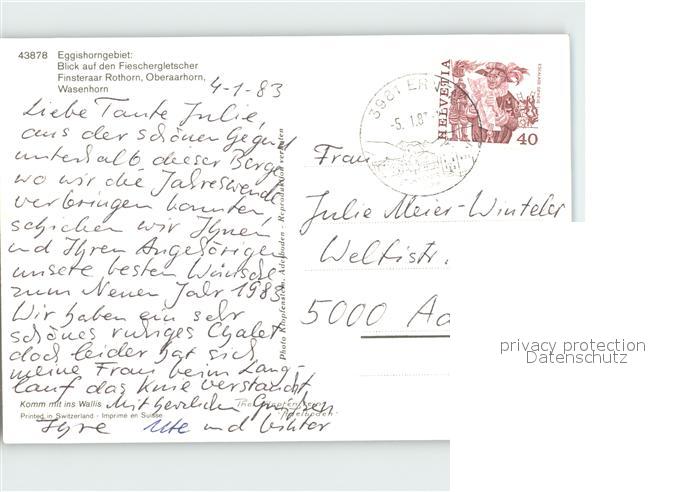 43878 Eggishorngebiet:
Blick auf den Fieschergletscher
Finsteraar Rothorn, Oberaarhorn,
Wasenhorn
4-1-83
Liebe Tante Julie,
aus der schönen Gegend
unterhalb dieser Berge
wo wir die Jahreswende
verbringen konnten,
schicken wir Ihnen
und Ihren Angehörigen
unsere besten Wünsche
zum Neuen Jahr 1983
Wir haben ein sehr
schönes ruhiges Chalet
doch leider hat sich
meine Frau beim Lang-
lauf das Knie verstaucht
Mit herzlichen Grüssen
Ihre Ute und
Komm mit ins Wallis
Printed in Switzerland - Imprimé en Suisse
Photo Klopfenstein, Adelboden - Reproduktion verboten
3981 ER
-5. 1.83
HELVETIA
40
ESCALADE GENÈVE
Frau
Julie Meier-Winteler
Weltistr.
5000 Aa
privacy protection
Datenschutz